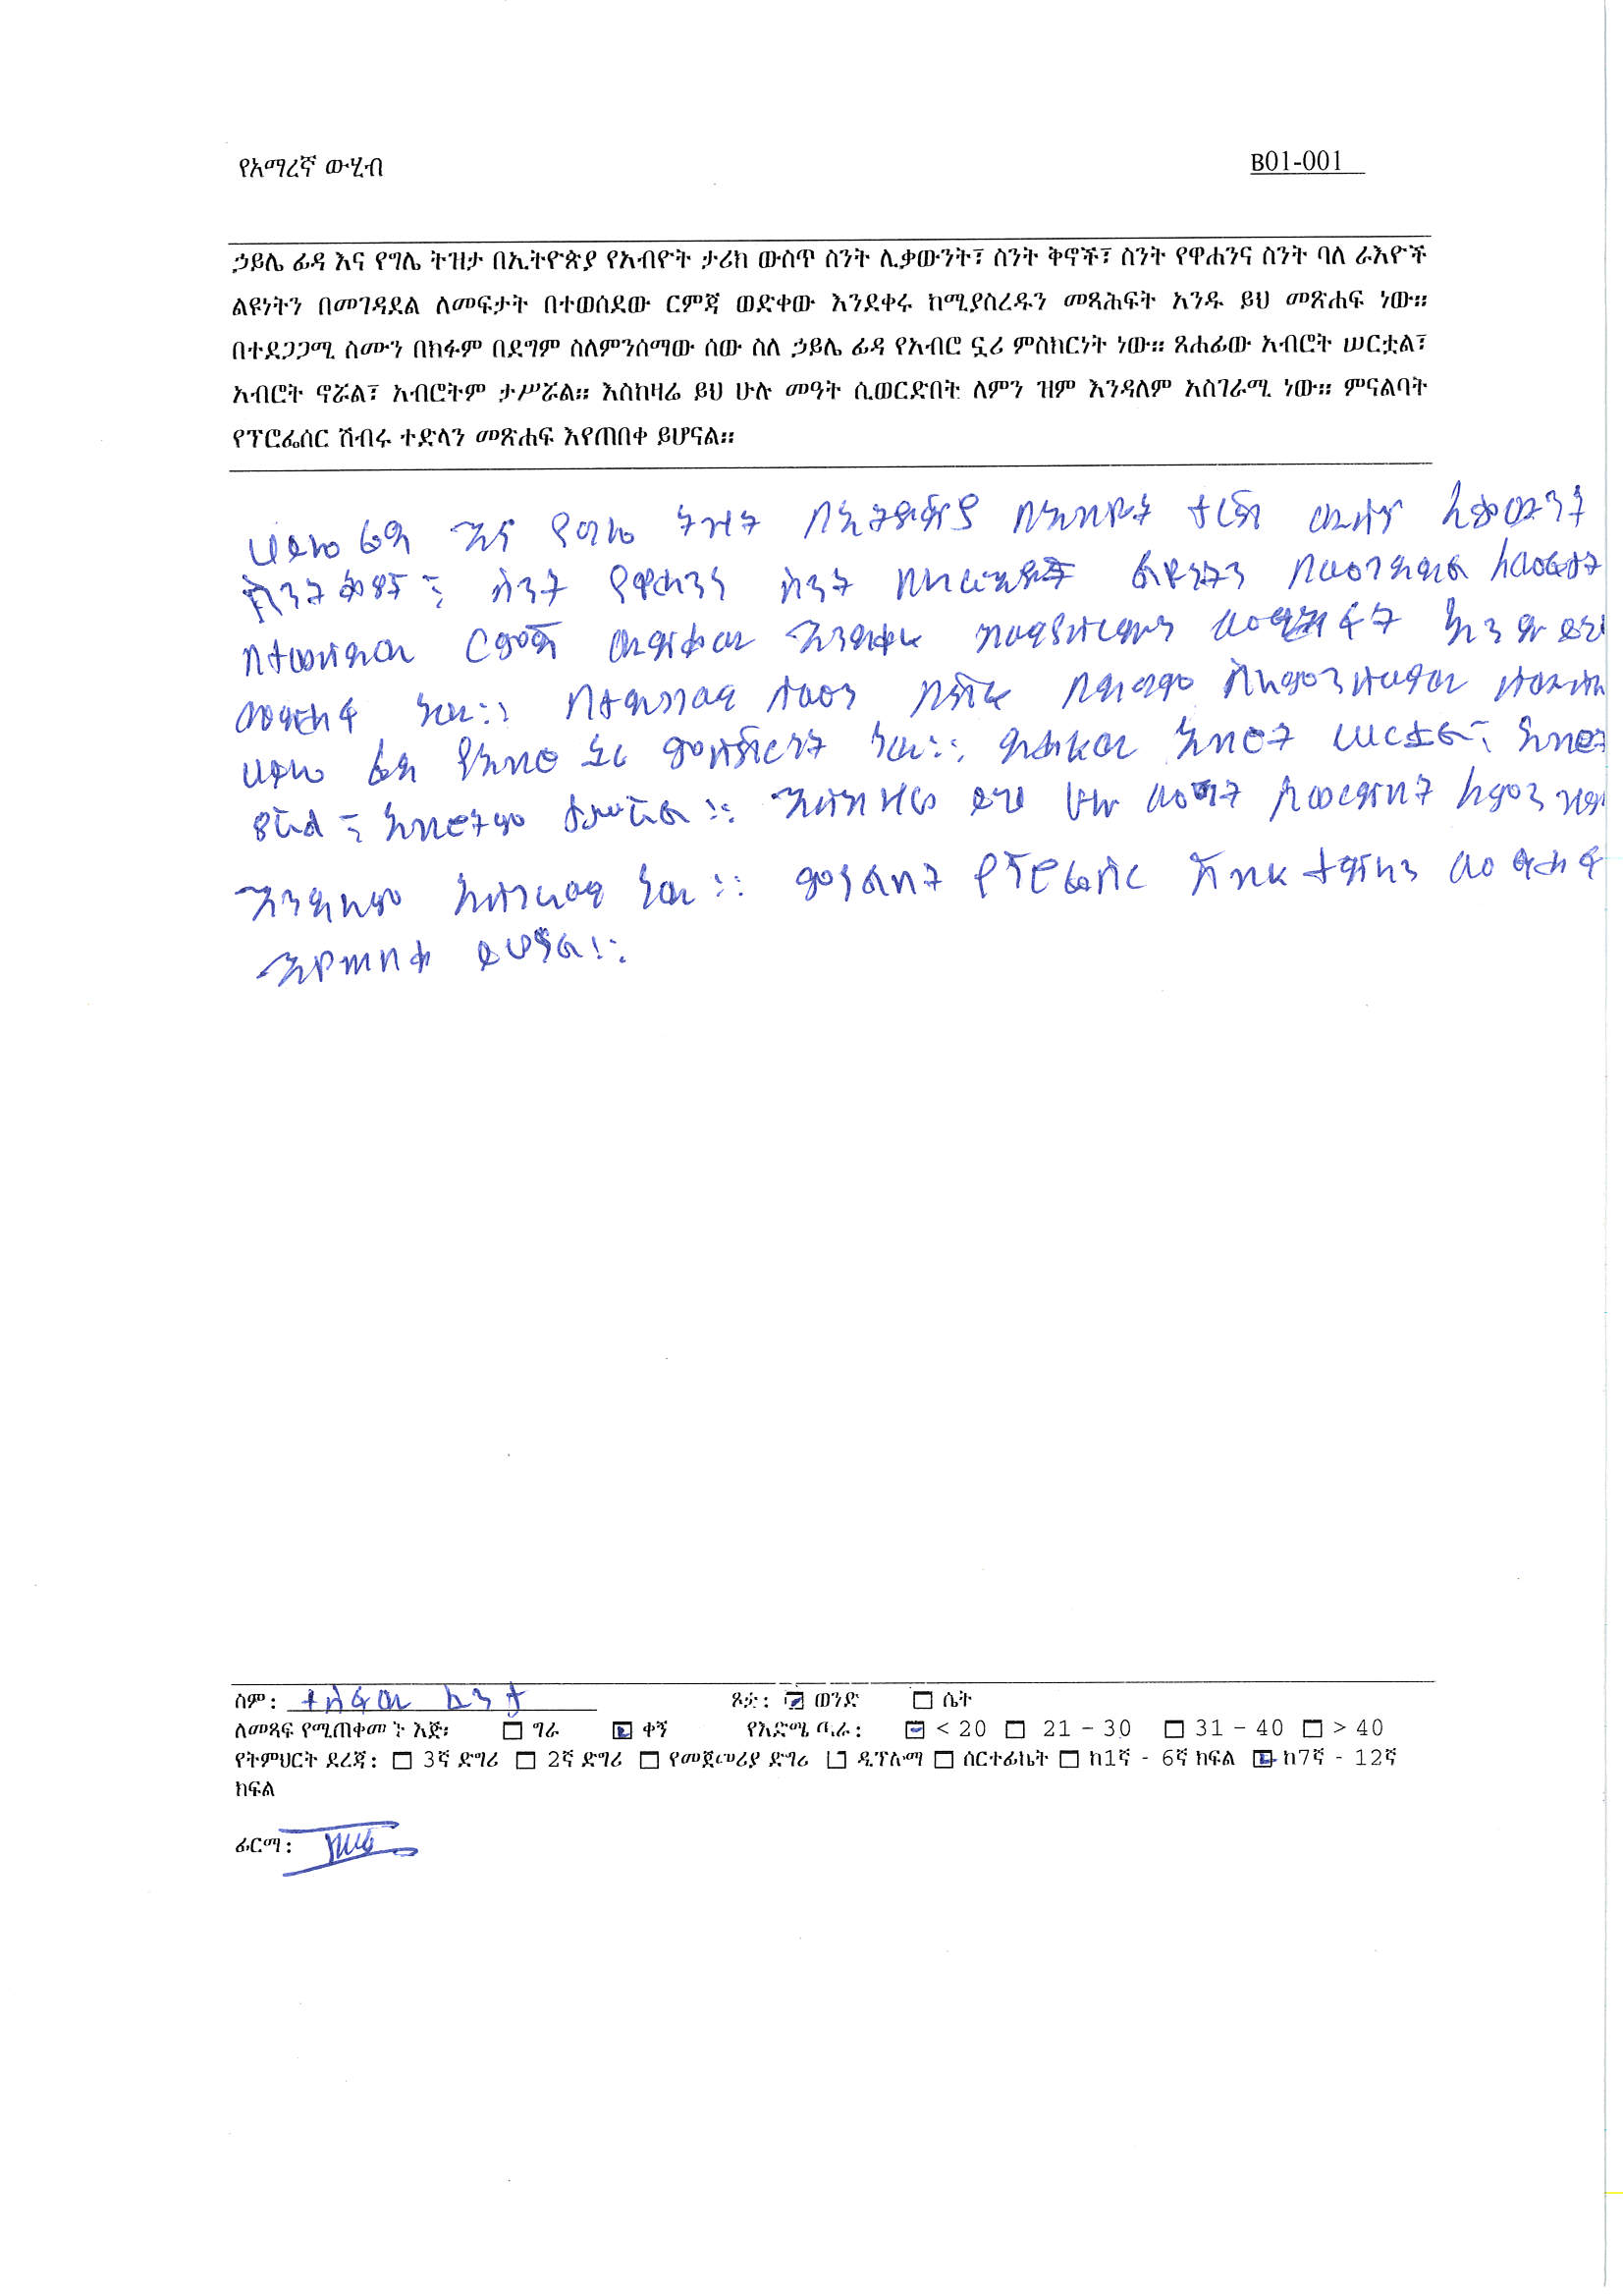 የአማረኛ ውሂብ
B01-001
ኃይሌ ፊዳ እና የግሌ ትዝታ በኢትዮጵያ የአብዮት ታሪክ ውስጥ ስንት ሊቃውንት፣ ስንት ቅኖች፣ ስንት የዋሐንና ስንት ባለ ራእዮች
ልዩነትን በመገዳደል ለመፍታት በተወሰደው ርምጃ ወድቀው እንደቀሩ ከሚያስረዱን መጻሕፍት አንዱ ይህ መጽሐፍ ነው።
በተደጋጋሚ ስሙን በክፉም በደግም ስለምንሰማው ሰው ስለ ኃይሌ ፊዳ የአብሮ ኗሪ ምስክርነት ነው። ጸሐፊው አብሮት ሠርቷል፣
አብሮት ኖሯል፣ አብሮትም ታሥሯል። እስከዛሬ ይህ ሁሉ መዓት ሲወርድበት ለምን ዝም እንዳለም አስገራሚ ነው። ምናልባት
የፕሮፌሰር ሽብሩ ተድላን መጽሐፍ እየጠበቀ ይሆናል።
ሀይሌ ፊዳ እና የግሌ ትዝታ በኢትዮጵያ በአብዮት ታሪክ ውስጥ ሊቃውንት
ስንት ቅኖች፣ ስንት የዋሐንን ስንት ባለራእዮች ልዩነትን በመገዳደል ለመፍታት
በተወሰደው ርምጃ ወድቀው እንደቀሩ ከሚያስረዱን መጻሕፍት አንዱ ይህ
መጽሐፍ ነው። በተደጋጋሚ ስሙን በክፉ በደግም ስለምንሰማው
ሀይሌ ፊዳ የአብሮ ኗሪ ምስክርነት ነው። ጸሐፊው አብሮት ሠርቷል፣ አብሮት
ኖሯል፣ አብሮትም ታሥሯል። እስከዛሬ ይህ ሁሉ መዓት ሲወርድበት ለምን ዝም
እንዳለም አስገራሚ ነው። ምናልባት የፕሮፌሰር ሽብሩ ተድላን መጽሐፍ
እየጠበቀ ይሆናል።
ስም: ተስፋው
ጾታ: ወንድ ሴት
ለመጻፍ የሚጠቀሙት እጅ፡ ግራ ቀኝ የእድሜ ጣራ: < 20 21 – 30 31 – 40 > 40
የትምህርት ደረጃ: 3ኛ ድግሪ 2ኛ ድግሪ የመጀመሪያ ድግሪ ዲፕሎማ ሰርተፊኬት ከ1ኛ - 6ኛ ክፍል ከ7ኛ - 12ኛ
ክፍል
ፊርማ: